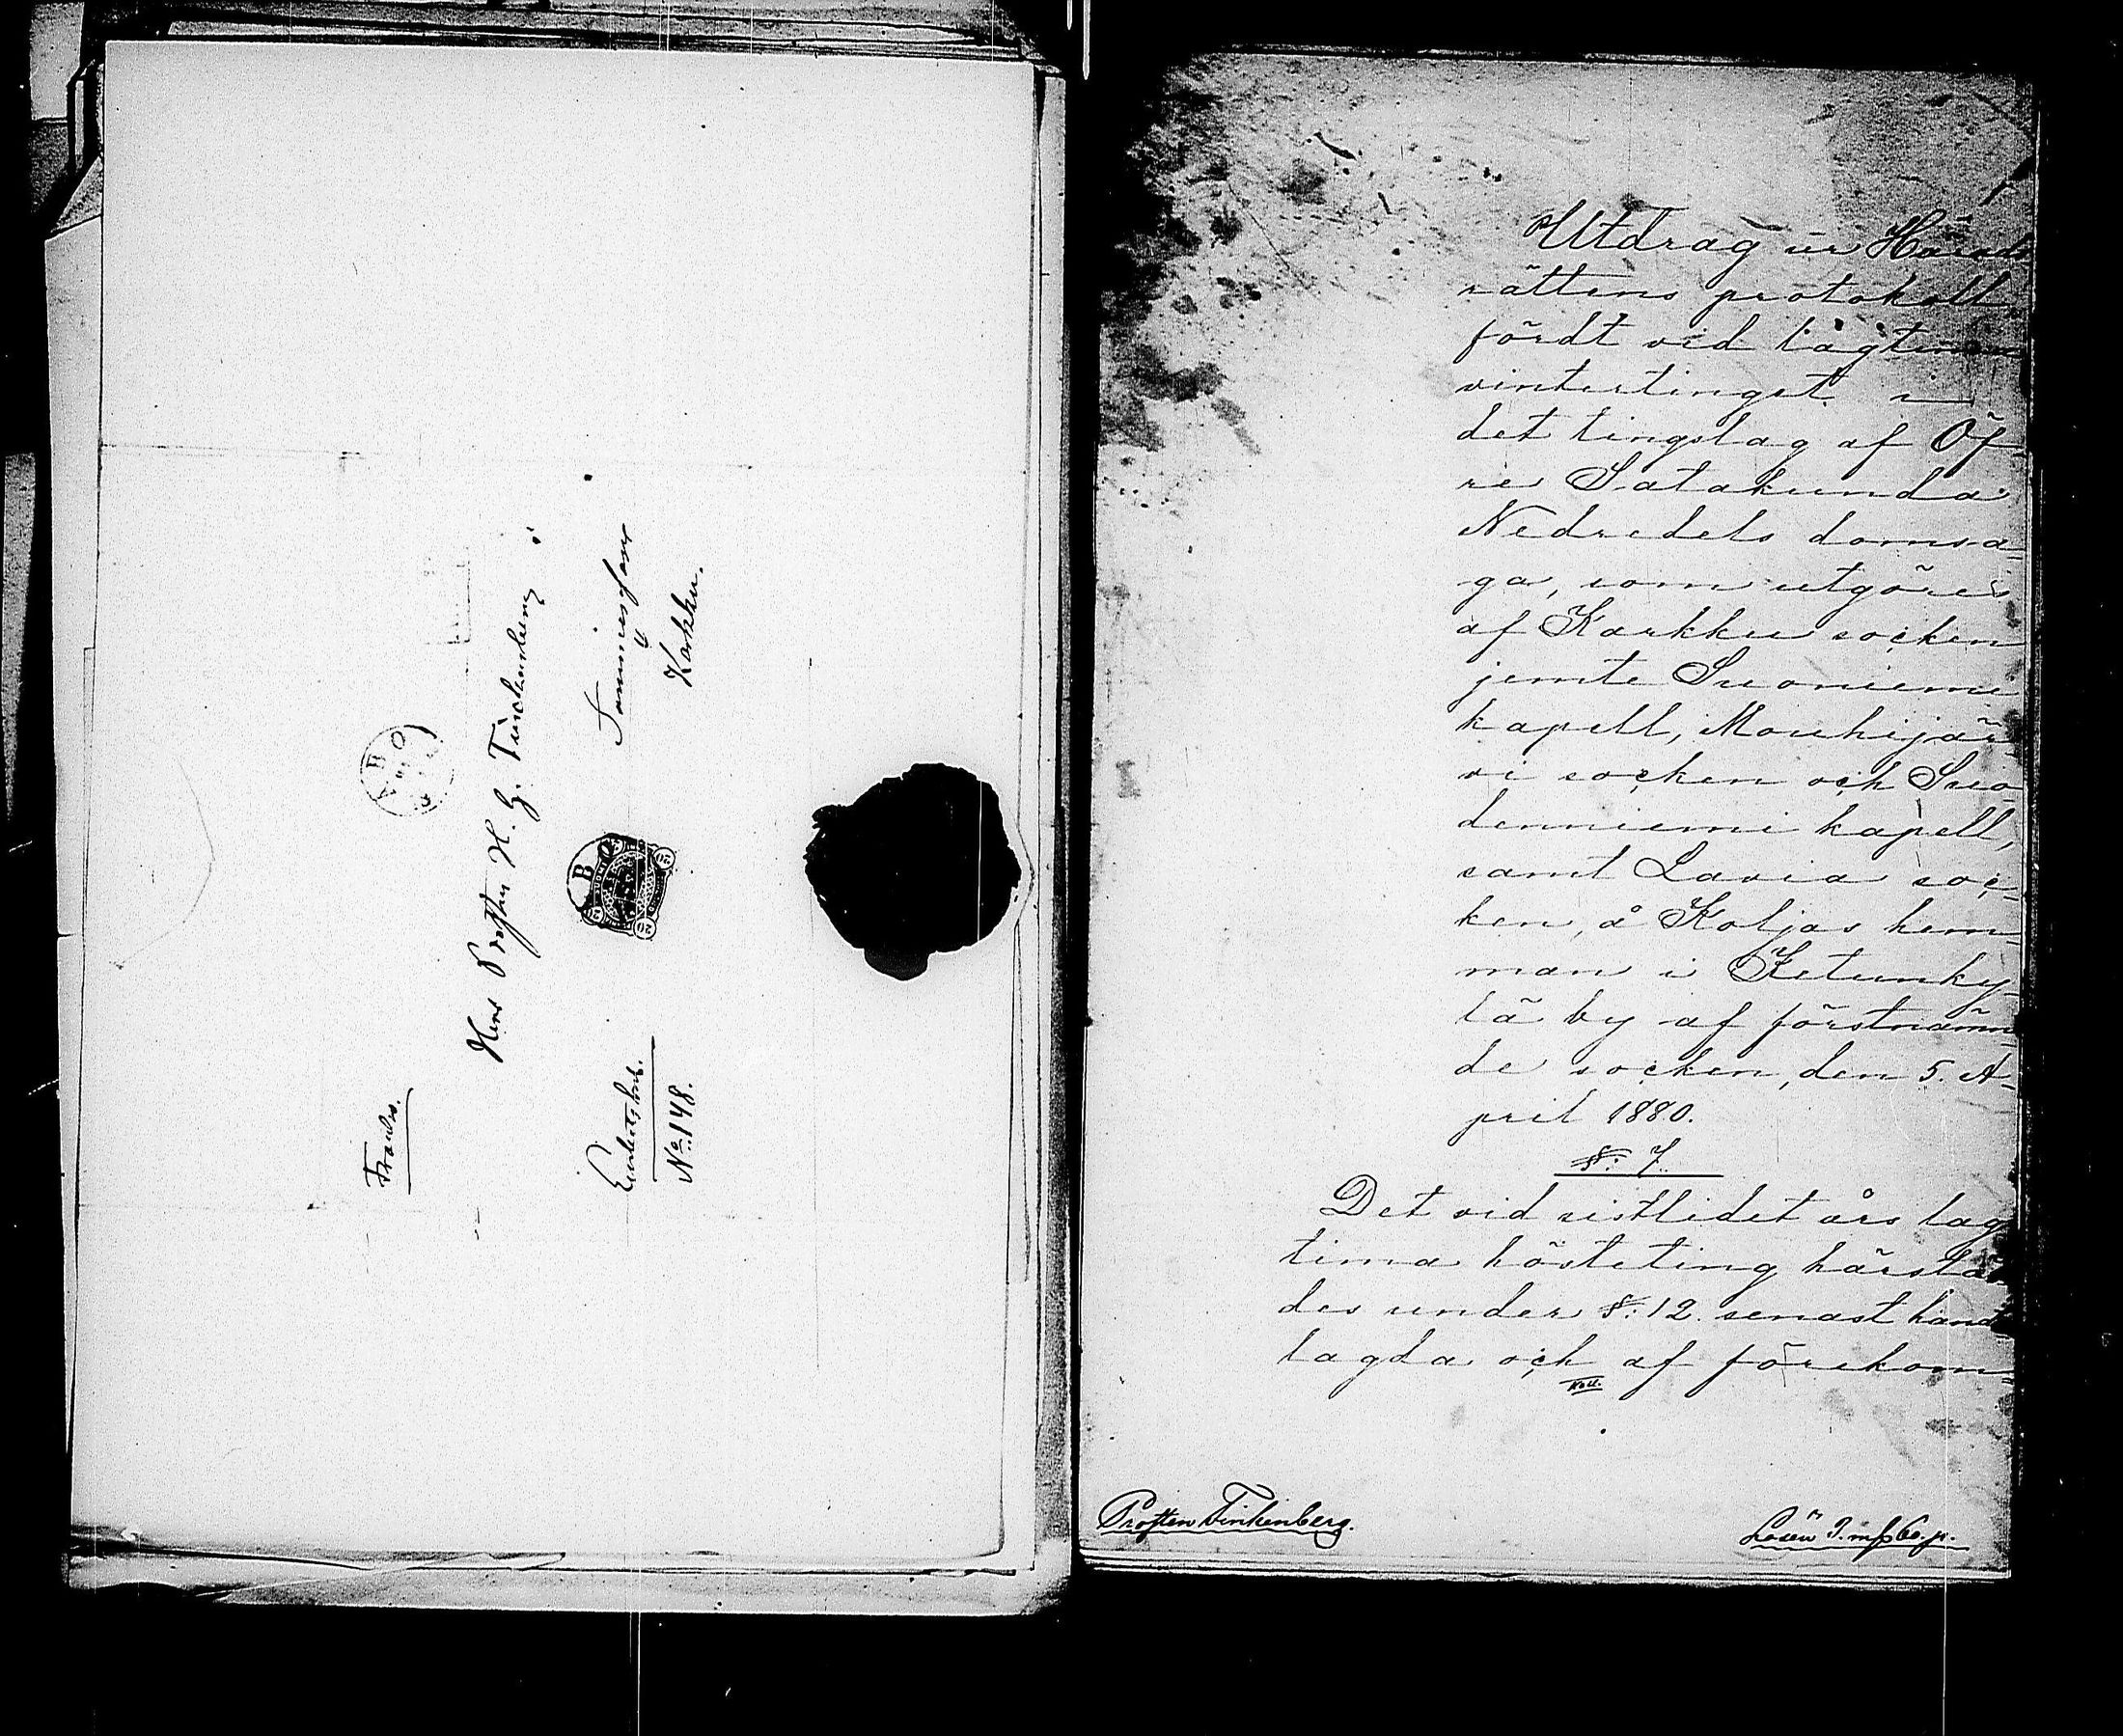 Franko.
ABO
Herr Prosten H. G. Tinckenberg i
Tammerfors
Karkku.
Embetsbref.
No: 148.
20
Utdrag ur Härads
rättens protokoll
fördt vid lagtima
vintertinget i
det tingslag af Öf-
re Satakunda
Nedredels domsa-
ga, som utgöres
af Karkku socken
jemte Suoniemi
kapell, Mouhijär-
vi socken och Suo-
denniemi kapell,
samt Lavia soc-
ken, å Koljas hem-
man i Ketunky-
lä by af förstnämn-
de socken, den 5. A-
pril 1880.
§: 7.
Det vid sistlidet års lag
tima hösteting härstä-
des under §: 12. senast hand-
lagda och af förekom-
Koll.
Prosten Tinkenberg.
Lösen 9. mk 60. p.